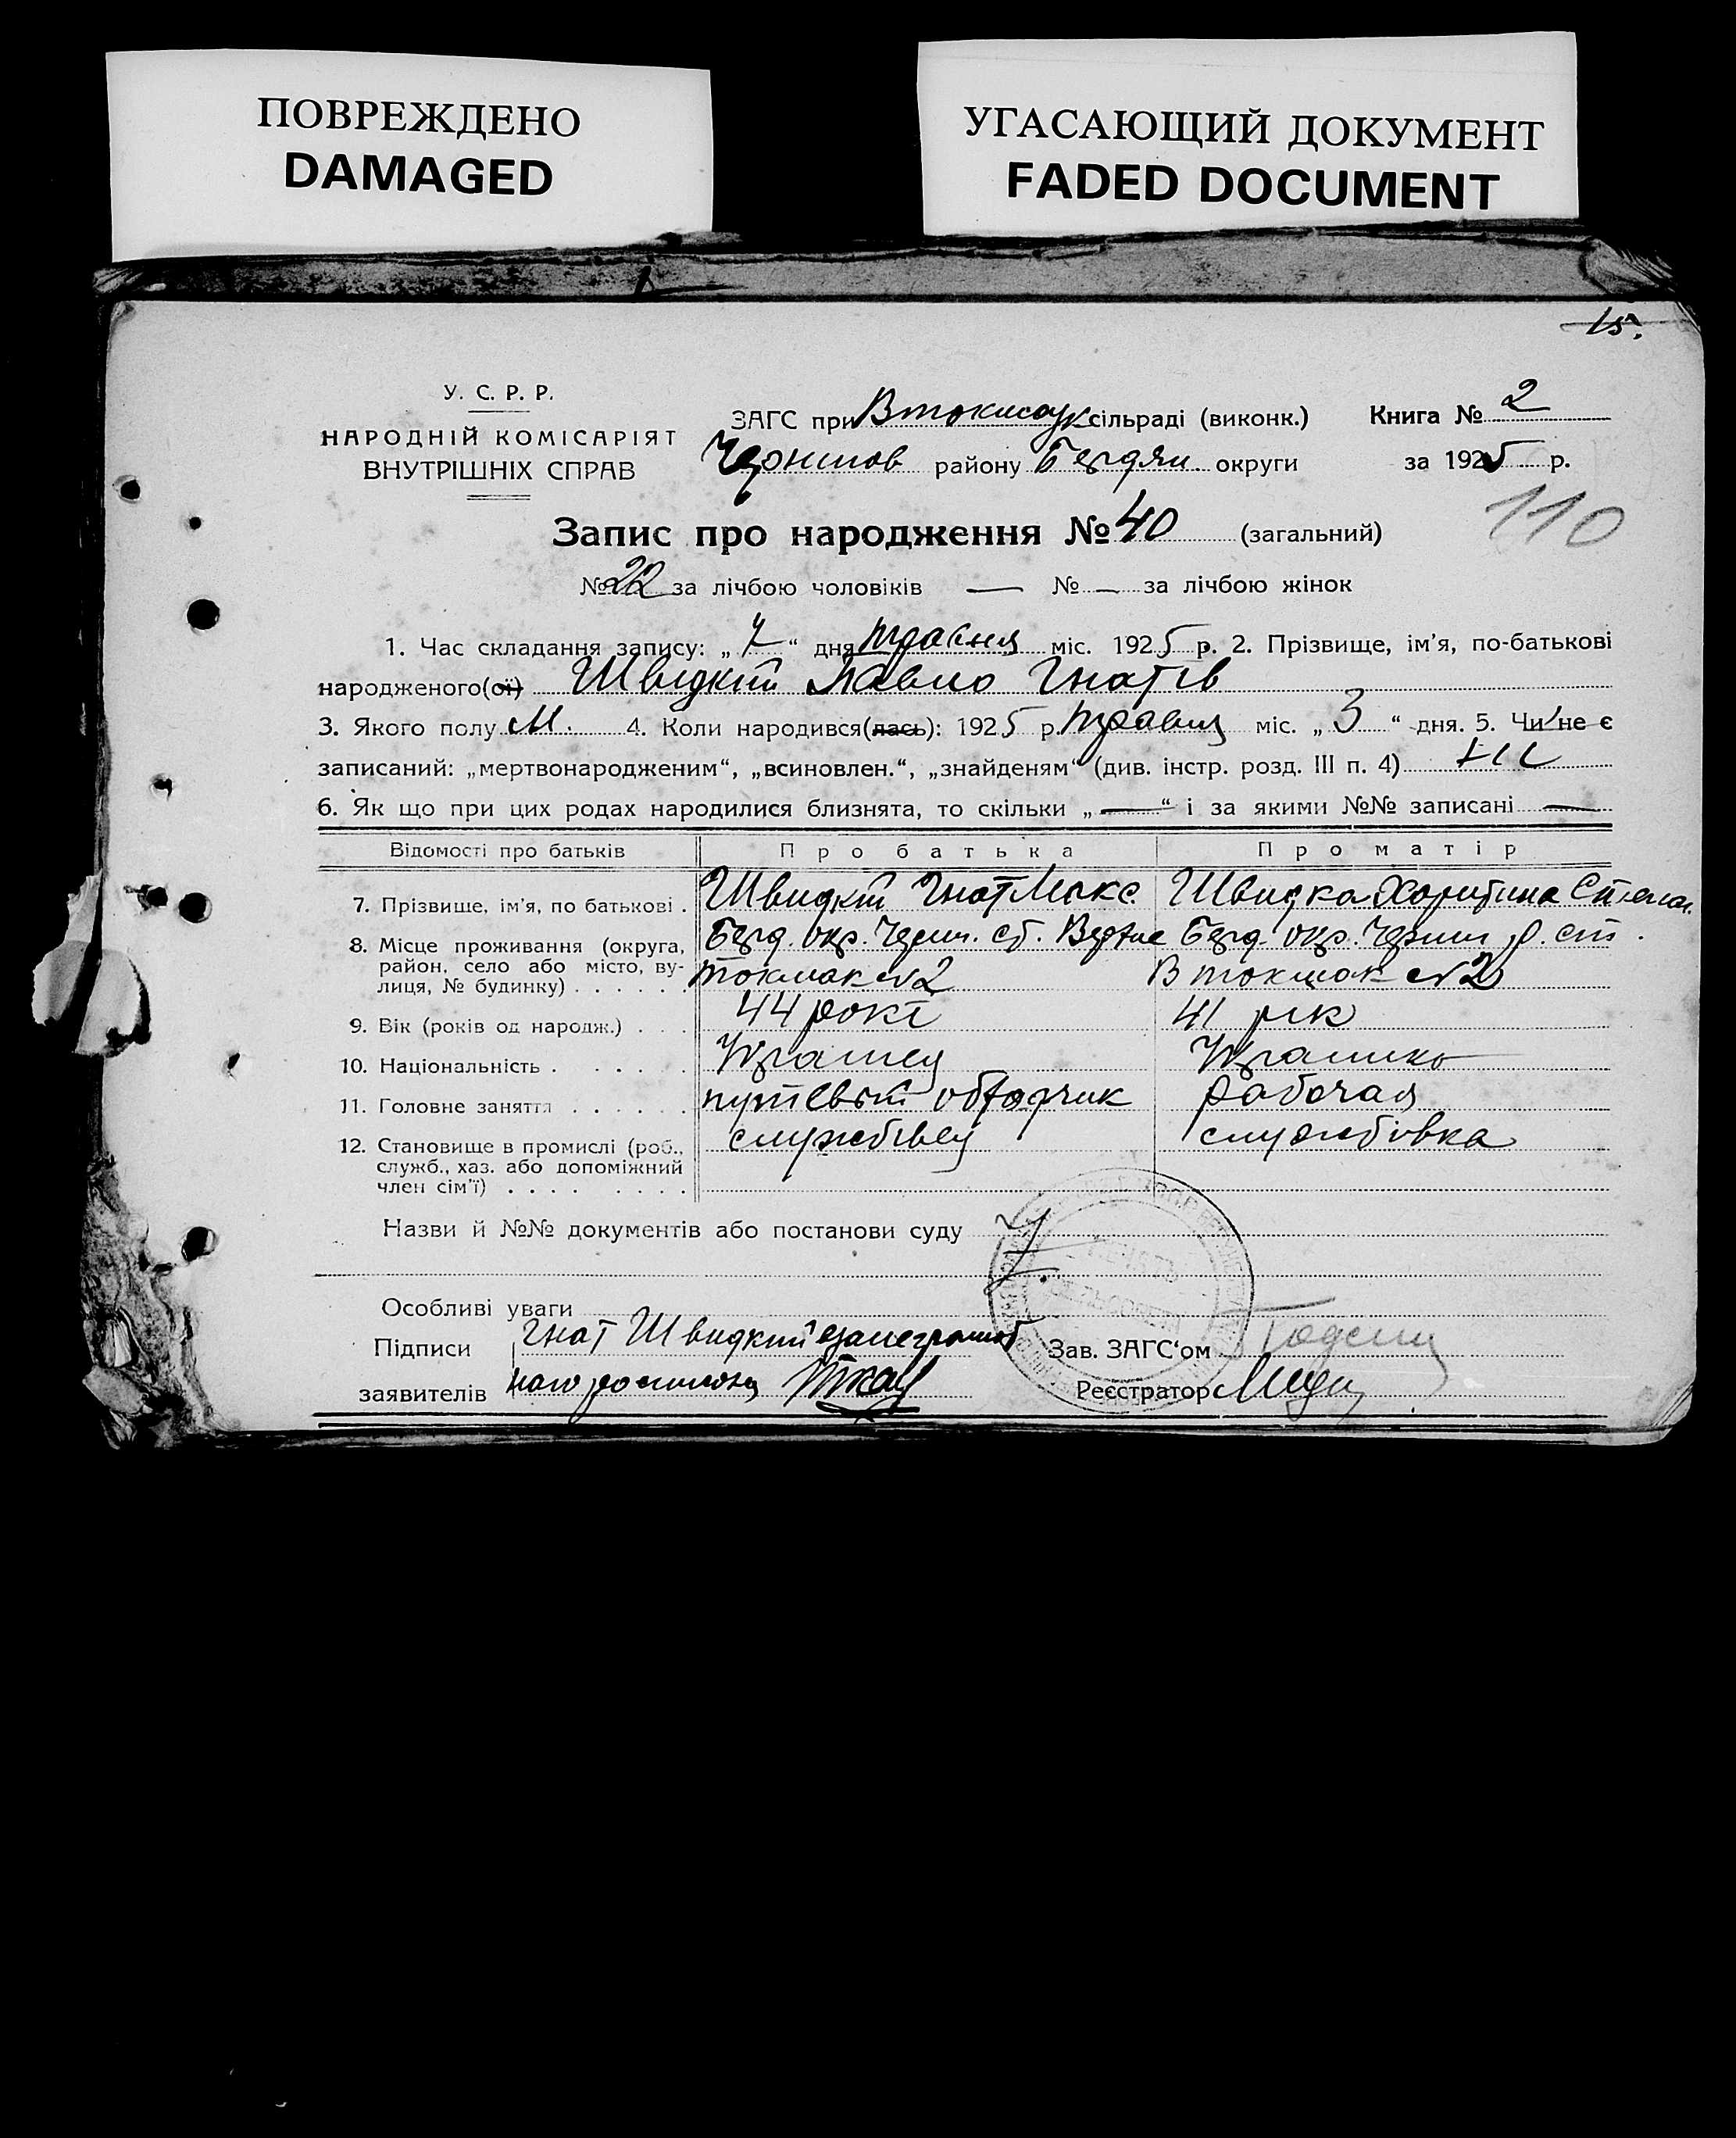 ПОВРЕЖДЕНО
DAMAGED
УГАСАЮЩИЙ ДОКУМЕНТ
FADED DOCUMENT
15
У. С. Р. Р.
НАРОДНІЙ КОМІСАРІЯТ
ВНУТРІШНІХ СПРАВ
ЗАГС при Втокмак сільраді (виконк.) Книга № 2
района Бердян. округи за 1925 р.
110
Запис про народження № 40 (загальний)
№ 22 за лічбою чоловіків — № — за лічбою жінок
1. Час складання запису: „ 7 “ дня травня міс. 1925 р. 2. Прізвище, ім’я, по-батькові
народженого(ої) Швидкий Павло Гнатів
3. Якого полу М. 4. Коли народився(лась): 1925 р. травня міс. „ 3 “ дня. 5. Чи не є
записаний: „мертвонародженим“, „всиновлен.“, „знайденям“ (див. інстр. розд. III п. 4)
6. Як що при цих родах народилися близнята, то скільки „ — “ і за якими №№ записані —
Відомості про батьків Про батька Про матір
7. Прізвище, ім’я, по батькові . Швидкий Гнат Макс. Швидка Харитина Степан.
8. Місце проживання (округа, Берд. окр. Берд. окр.
район, село або місто, ву-
лиця, № будинку) . . . . . токмак №2 В токмак №2
9. Вік (років од народж.) . . . 44 рокі 41 рік
10. Національність . . . . . Українец Українка
11. Головне заняття . . . . . . путевый обходчик рабочая
12. Становище в промислі (роб., службівец службовка
служб., хаз. або допоміжний
член сім’ї) . . . . . . . .
Назви й №№ документів або постанови суду
Особливі уваги
Підписи Гнат Швидкий
заявителів
Зав. ЗАГС‘ом
Реєстратор